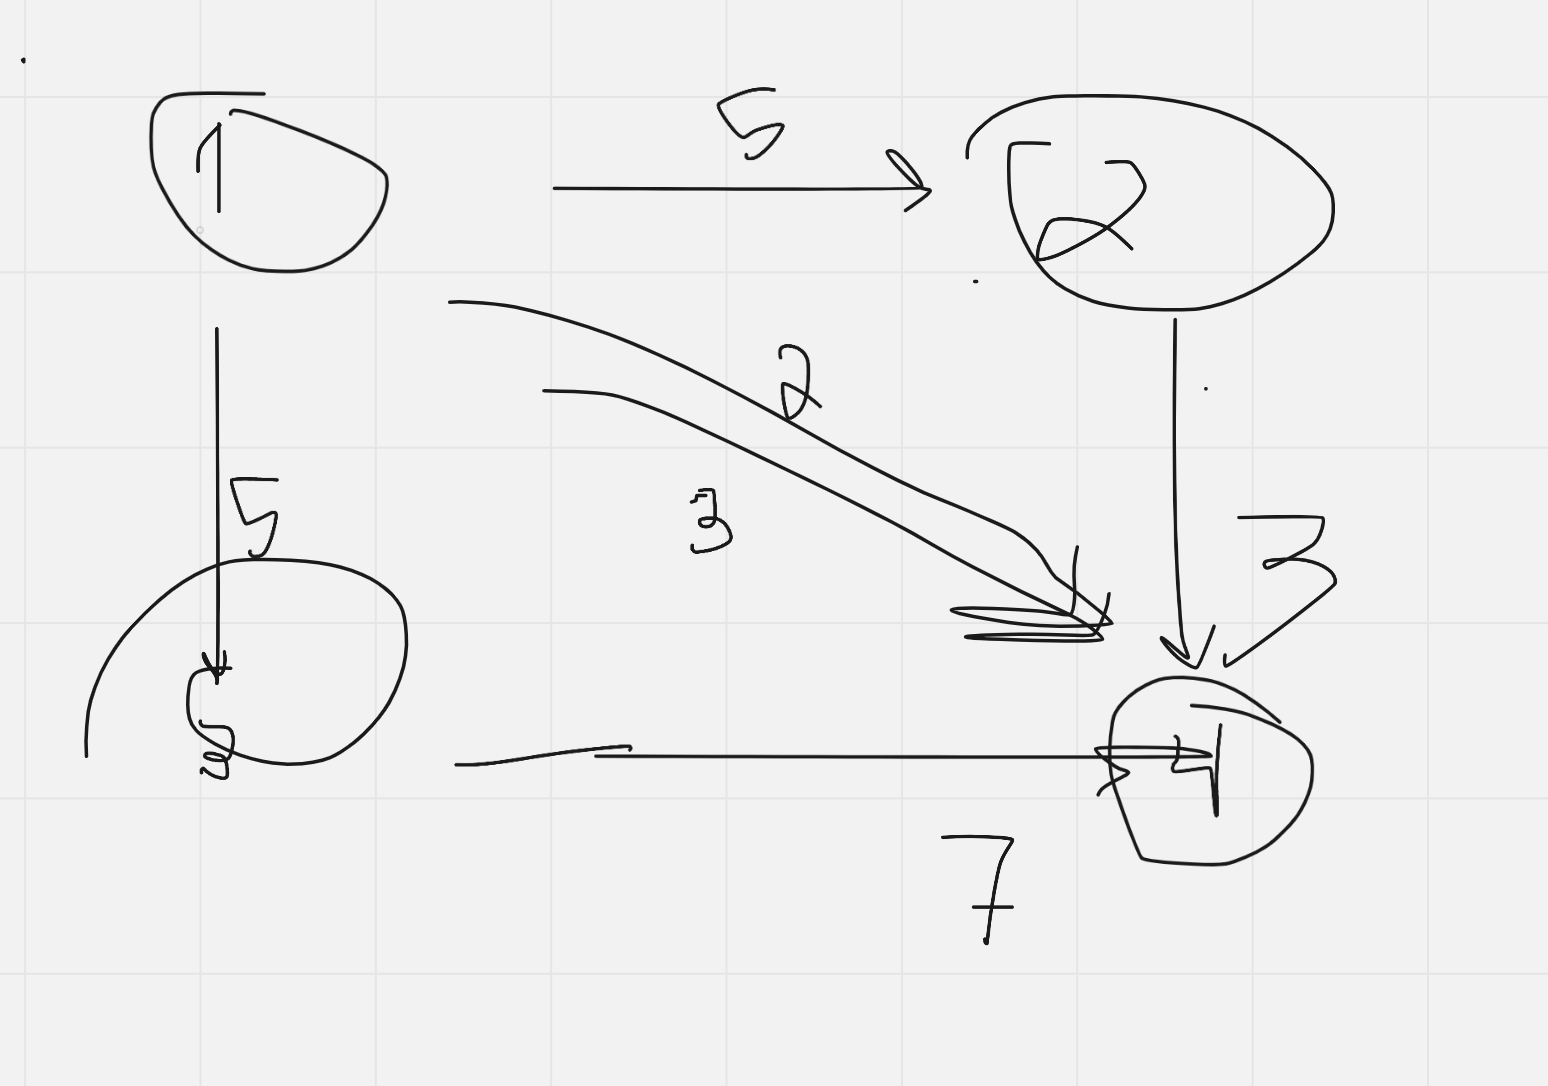 1
5
2
2
5
3
3
3
4
7